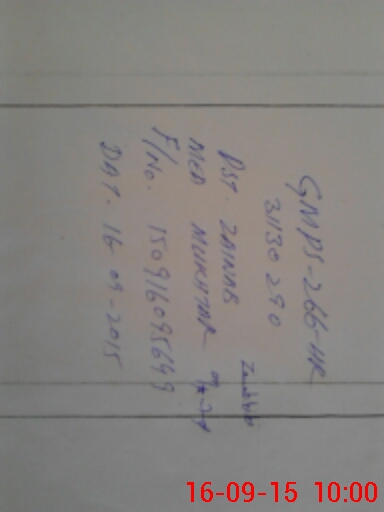 GMPS-266-HR
31130290
DST. ZAINAB
MED MUKHTAR
F/No. 150916095699
DAT. 16-09-2015
16-09-15 10:00